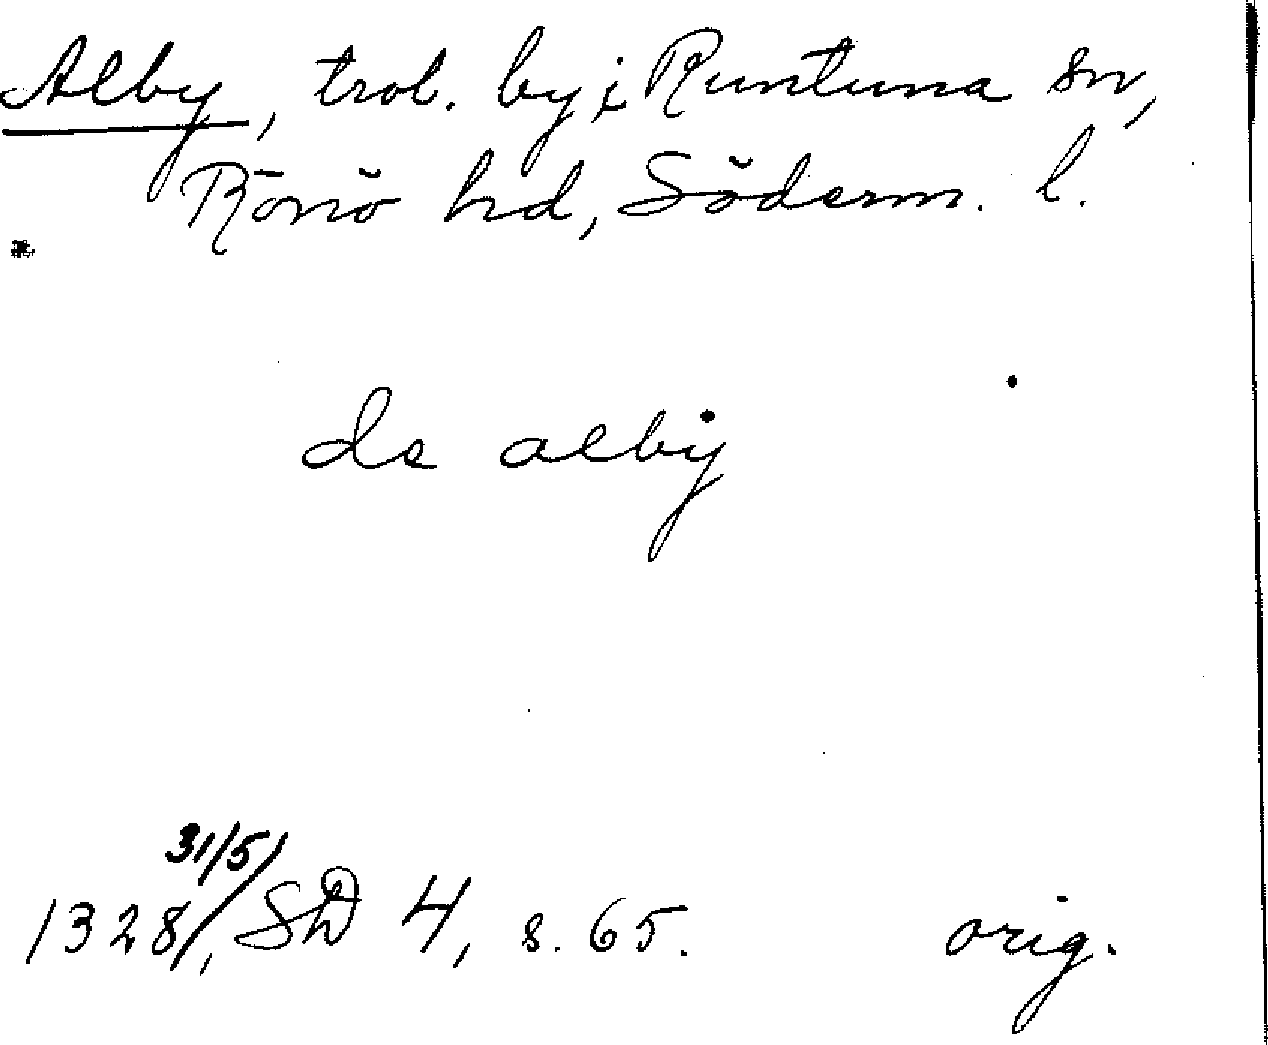 Alby, trol. by i Runtuna sn,
Rönö hd, Söderm. l.
de alby
1328 31/5, SD 4, s. 65. orig.